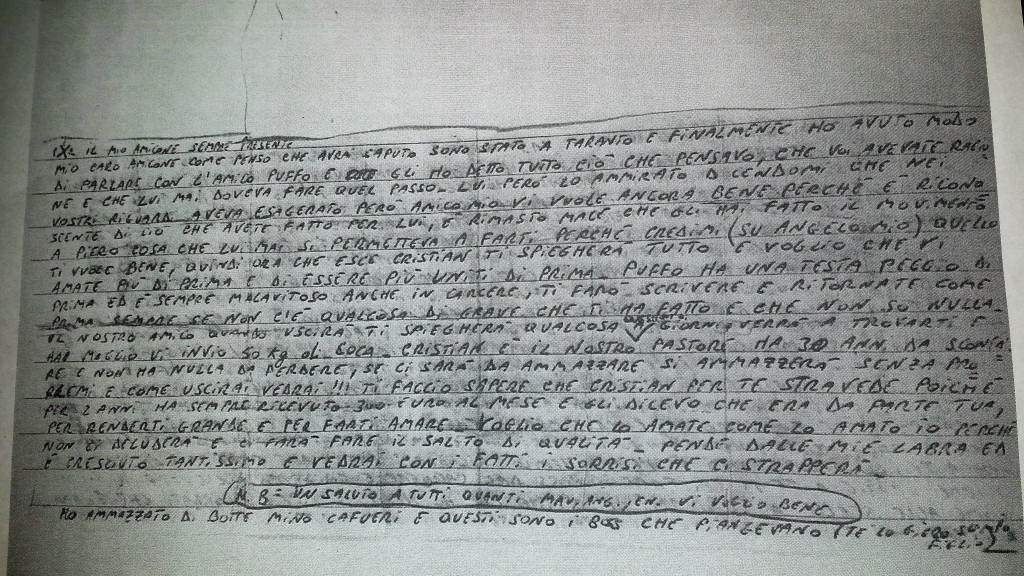 IL MIO AMICONE SEMPRE PRESENTE
MIO CARO AMICONE COME PENSO CHE AVRAI SAPUTO SONO STATO A TARANTO E FINALMENTE HO AVUTO MODO
DI PARLARE CON L'AMICO PUFFO E GLI HO DETTO TUTTO CIÒ CHE PENSAVO, CHE VOI AVEVATE RAGIO
NE E CHE LUI MAI DOVEVA FARE QUEL PASSO - LUI PERÒ LO AMMIRATO DICENDOMI CHE NEI
VOSTRI RIGUARDI AVEVA ESAGERATO PERÒ AMICO MIO VI VUOLE ANCORA BENE PERCHÉ È RICONO
SCENTE DI CIÒ CHE AVETE FATTO PER LUI, È RIMASTO MALE CHE GLI HAI FATTO IL MOVIMENTO
A PIERO COSA CHE LUI MAI SI PERMETTEVA A FARTI PERCHÉ CREDIMI (SU ANGELO MIO) QUELLO
TI VUOLE BENE, QUINDI ORA CHE ESCE CRISTIAN TI SPIEGHERÀ TUTTO E VOGLIO CHE VI
AMATE PIÙ DI PRIMA E DI ESSERE PIÙ UNITI DI PRIMA. PUFFO HA UNA TESTA PEGGIO DI
PRIMA ED È SEMPRE MALAVITOSO ANCHE IN CARCERE, TI FARÒ SCRIVERE E RITORNATE COME
PRIMA SEMPRE SE NON C'È QUALCOSA DI GRAVE CHE TI HA FATTO E CHE NON SO NULLA.
IL NOSTRO AMICO QUANDO USCIRÀ TI SPIEGHERÀ QUALCOSA GIORNI VERRÀ A TROVARTI E
MAGLIO VI INVIO 50 KG di COCA - CRISTIAN È IL NOSTRO PASTORE HA 30 ANNI DA SCONTA
RE E NON HA NULLA DA PERDERE, SE CI SARÀ DA AMMAZZARE SI AMMAZZERÀ SENZA PRO
BREMI E COME USCIRAI VEDRAI !!! TI FACCIO SAPERE CHE CRISTIAN PER TE STRAVEDE POICHÉ
PER 2 ANNI HA SEMPRE RICEVUTO 300 EURO AL MESE E GLI DICEVO CHE ERA DA PARTE TUA,
PER RENDERTI GRANDE E PER FARTI AMARE - VOGLIO CHE LO AMATE COME LO AMATO IO PERCHÉ
NON CI DELUDERÀ E CI FARÀ FARE IL SALTO DI QUALITÀ - PENDE DALLE MIE LABRA ED
È CRESCIUTO TANTISSIMO E VEDRAI CON I FATTI I SORRISI CHE CI STRAPPERÀ
N.B = UN SALUTO A TUTTI QUANTI MAU, ANG., EN. VI VOGLIO BENE
HO AMMAZZATO DI BOTTE MINO CAFUERI E QUESTI SONO I BOSS CHE PIANGEVANO (TE LO
FIGLIO)